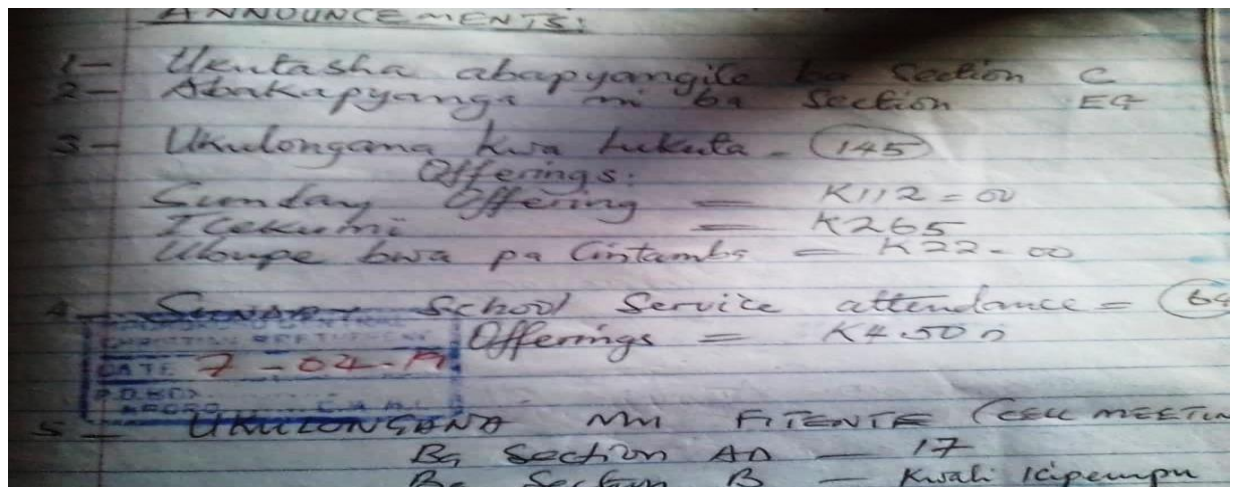 ANNOUNCEMENTS:
1- Ukutasha abapyangile ba Section C
2- Abakapyanga ni ba Section EG
3- Ukulongana kwa lukuta - 145
Offerings:
Sunday Offering = K112=00
Icekumi = K265
Ubupe bwa pa Cintambo = K22-00
4- SUNDAY School Service attendance =
Offerings = K4.50n
CHRISTIAN
DATE 7-04-19
P.O. BOX
5- UKULONGANA MU FITENTE (CELL MEETIN
Ba Section AD - 17
Ba Section B - Kwali icipempu